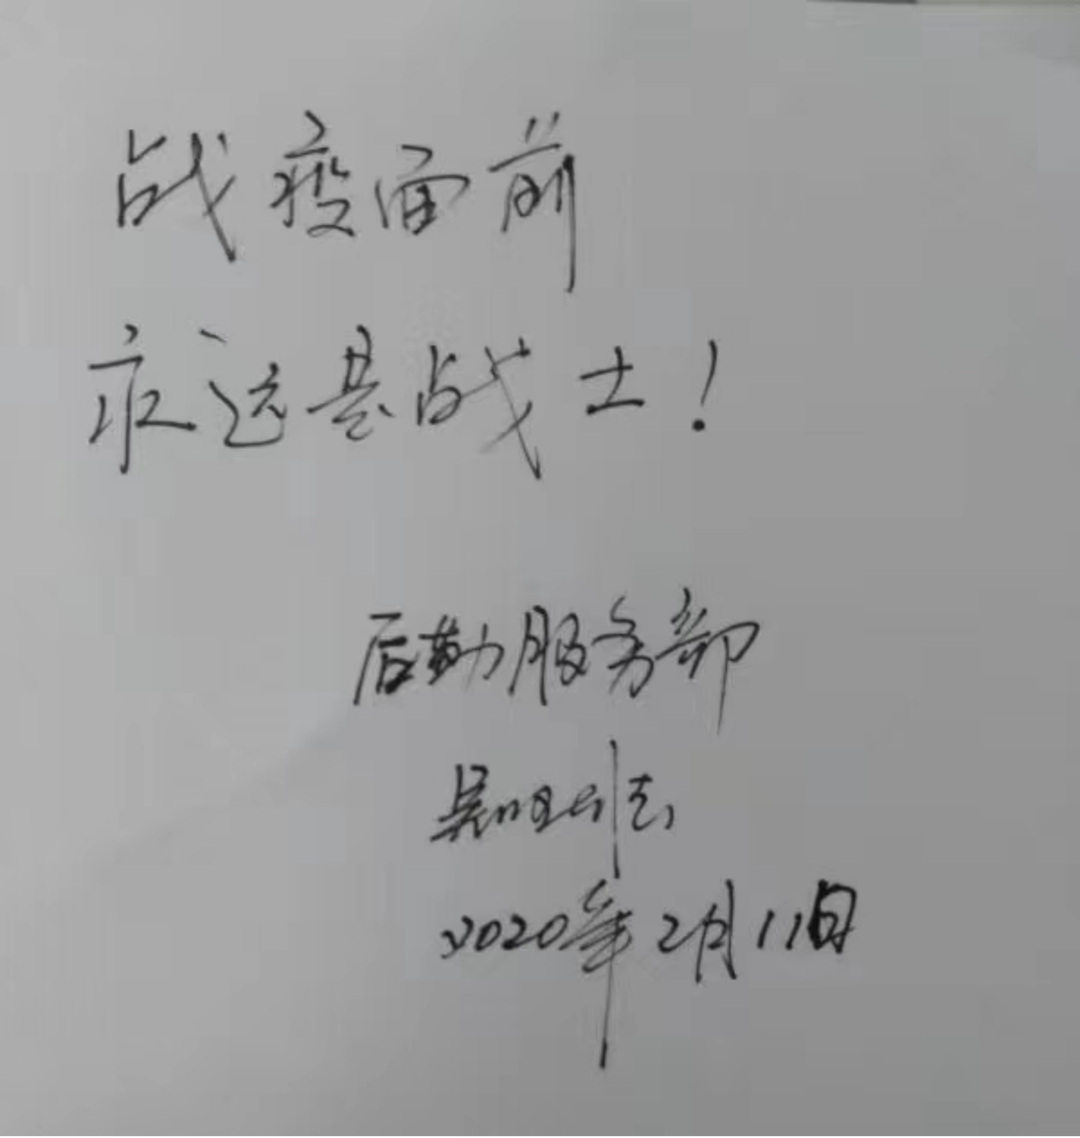 战疫面前
永远是战士!
后勤服务部
吴
2020年2月11日